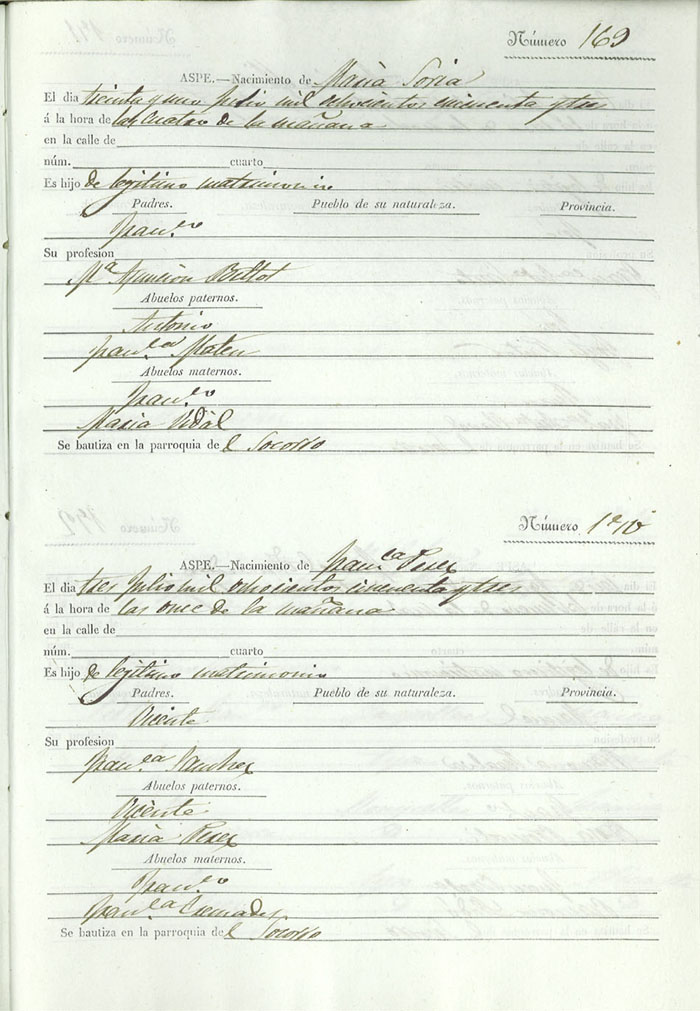 Número 169
ASPE.—Nacimiento de María Soria
El dia treinta y uno Julio mil ochocientos cincuenta y tres
á la hora de las cuatro de la mañana
en la calle de
núm. cuarto
Es hijo de legitimo matrimonio
Padres. Pueblo de su naturaleza. Provincia.
Fran.co
Su profesion
M.a Asuncion Beltot
Abuelos paternos.
Antonio
Fran.ca Mateu
Abuelos maternos.
Fran.co
Maria Vidal
Se bautiza en la parroquia de l Socorro
Número 170
ASPE.—Nacimiento de Fran.ca Perez
El dia tres Julio mil ochocientos cincuenta y tres
á la hora de las once de la mañana
en la calle de
núm. cuarto
Es hijo de legitimo matrimonio
Padres. Pueblo de su naturaleza. Provincia.
Vicente
Su profesion
Fran.ca Sanchez
Abuelos paternos.
Vicente
Maria Perez
Abuelos maternos.
Fran.co
Fran.ca
Se bautiza en la parroquia de l Socorro